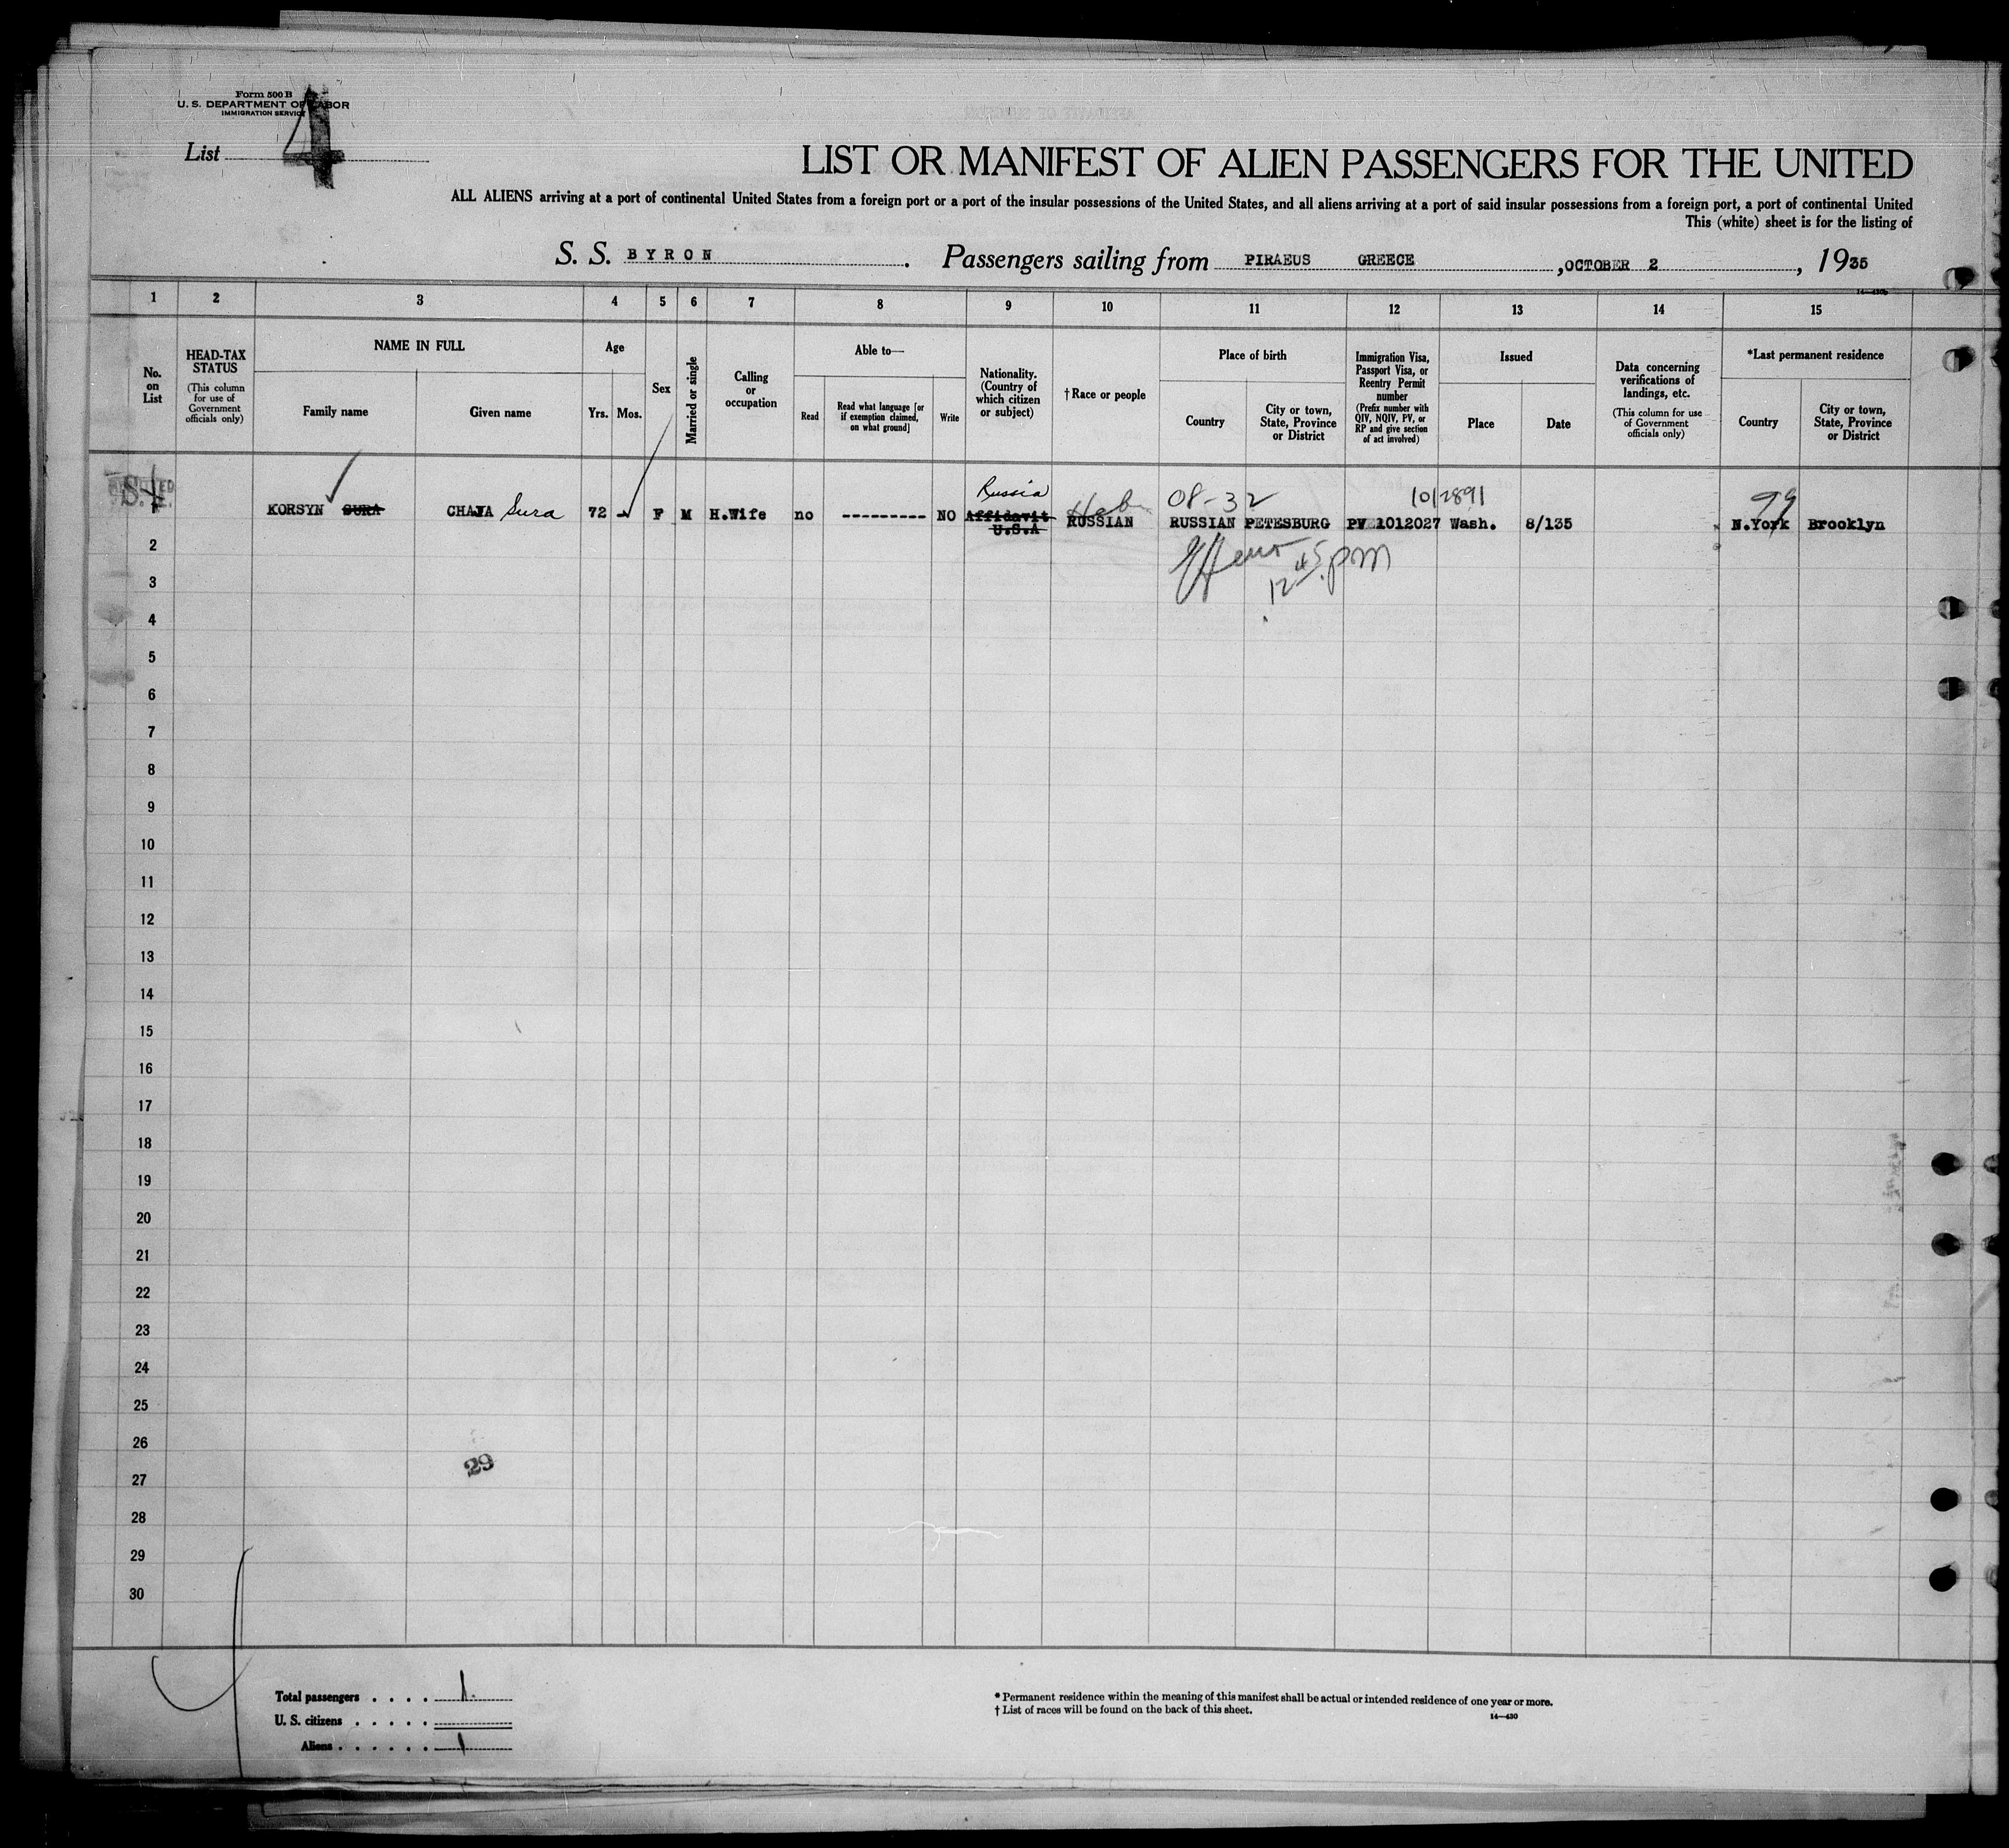 Form 500 B
U. S. DEPARTMENT OF LABOR
IMMIGRATION SERVICE
List 4
LIST OR MANIFEST OF ALIEN PASSENGERS FOR THE UNITED
ALL ALIENS arriving at a port of continental United States from a foreign port or a port of the insular possessions of the United States, and all aliens arriving at a port of said insular possessions from a foreign port, a port of continental United
This (white) sheet is for the listing of
S. S. BYRON . Passengers sailing from PIRAEUS GREECE , OCTOBER 2 , 1935
1 2 3 4 5 6 7 8 9 10 11 12 13 14 15
No. on List
HEAD-TAX STATUS (This column for use of Government officials only)
NAME IN FULL
Family name Given name
Age
Yrs. Mos.
Sex
Married or single
Calling or occupation
Able to—
Read Read what language [or if exemption claimed, on what ground] Write
Nationality. (Country of which citizen or subject)
† Race or people
Place of birth
Country City or town, State, Province or District
Immigration Visa, Passport Visa, or Reentry Permit number (Prefix number with QIV, NQIV, PV, or RP and give section of act involved)
Issued
Place Date
Data concerning verifications of landings, etc. (This column for use of Government officials only)
*Last permanent residence
Country City or town, State, Province or District
Russia Heb 08-32 1012891 99
KORSYN SURA CHAJA Sura 72 - F M H.Wife no --------- NO Affidavit U.S.A RUSSIAN RUSSIAN PETESBURG PV 1012027 Wash. 8/135 N.York Brooklyn
12 45 pm
2
3
4
5
6
7
8
9
10
11
12
13
14
15
16
17
18
19
20
21
22
23
24
25
26
29
27
28
29
30
Total passengers . . . . 1
U. S. citizens . . . . .
Aliens . . . . . . 1
* Permanent residence within the meaning of this manifest shall be actual or intended residence of one year or more.
† List of races will be found on the back of this sheet.
14—430